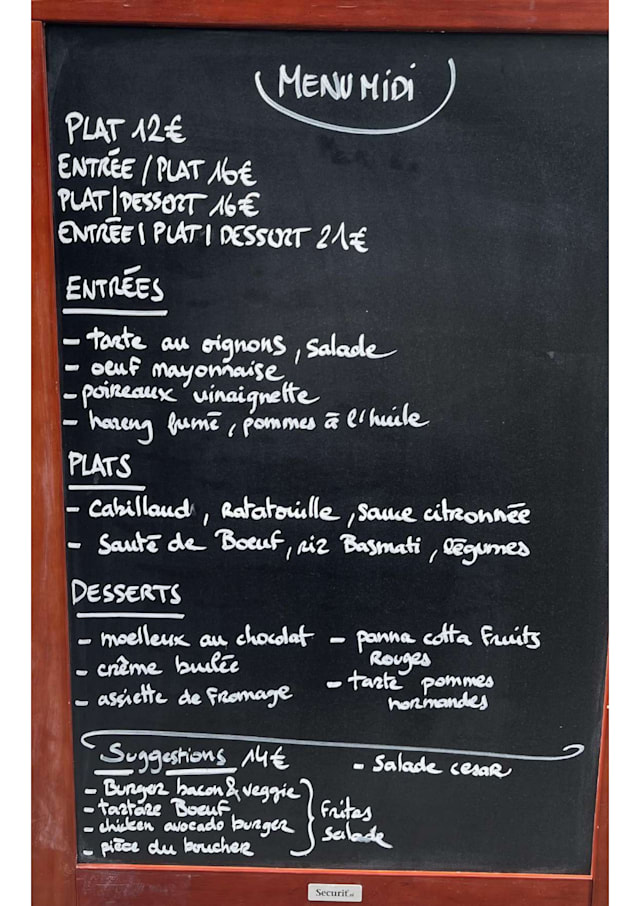 MENU MIDI
PLAT 12€
ENTRÉE / PLAT 16€
PLAT | DESSERT 16€
ENTRÉE | PLAT | DESSERT 21€
ENTRÉES
- tarte au oignons, salade
- oeuf mayonnaise
- poireaux vinaigrette
- hareng fumé, pommes à l'huile
PLATS
- Cabillaud, Ratatouille, sauce citronnée
- Sauté de Boeuf, riz Basmati, légumes
DESSERTS
- moelleux au chocolat
- crème brulée
- assiette de fromage
- panna cotta Fruits
Rouges
- tarte pommes
normandes
Suggestions 14€
- Burger bacon & veggie
- tartare Boeuf
- chicken avocado burger
- pièce du boucher
Frites
Salade
- Salade cesar
Securit